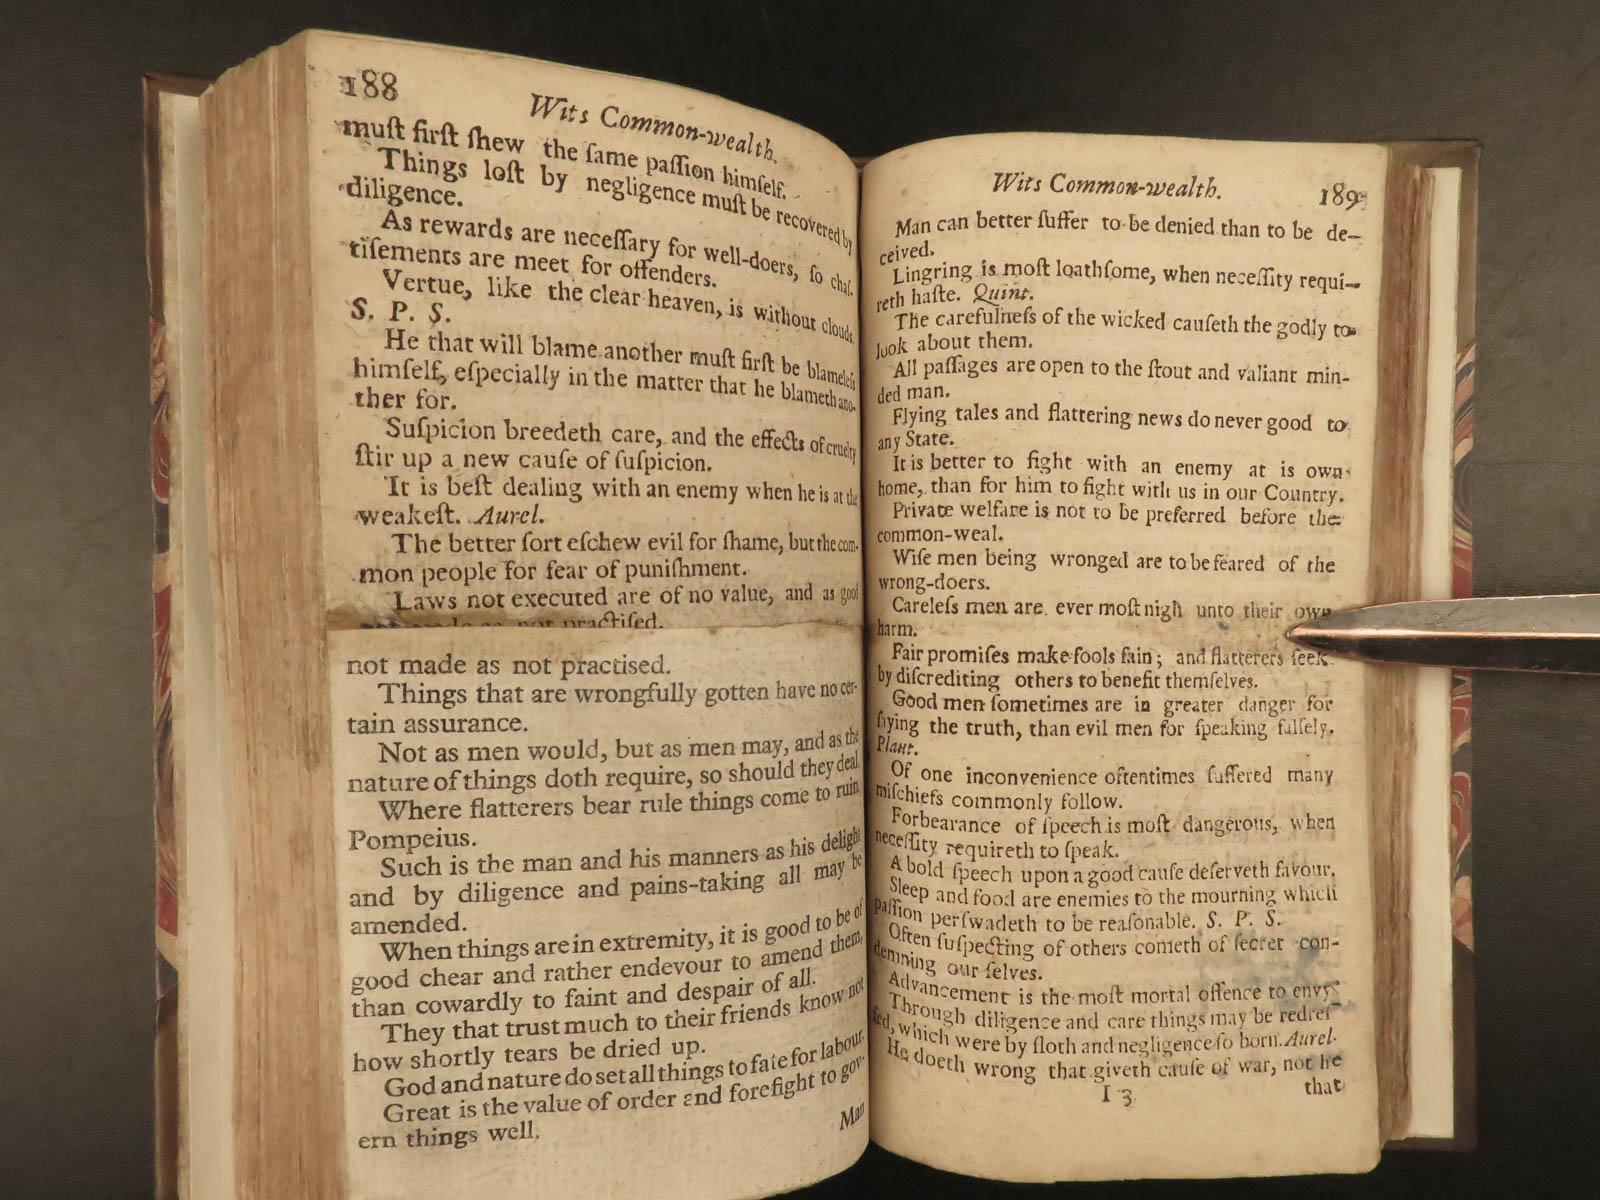 188
Wits Common-wealth.
muſt firſt ſhew the ſame paſſion himſelf.
Things loſt by negligence muſt be recovered by
diligence.
As rewards are neceſſary for well-doers, ſo chaſ-
tiſements are meet for offenders.
Vertue, like the clear heaven, is without clouds.
S. P. S.
He that will blame another muſt firſt be blameleſs
himſelf, eſpecially in the matter that he blameth ano-
ther for.
Suſpicion breedeth care, and the effects of cruelty
ſtir up a new cauſe of ſuſpicion.
It is beſt dealing with an enemy when he is at the
weakeſt. Aurel.
The better ſort eſchew evil for ſhame, but the com-
mon people for fear of puniſhment.
Laws not executed are of no value, and as good
not made as not practiſed.
not made as not practised.
Things that are wrongfully gotten have no cer-
tain assurance.
Not as men would, but as men may, and as the
nature of things doth require, so should they deal
Where flatterers bear rule things come to ruin
Pompeius.
Such is the man and his manners as his delight
and by diligence and pains-taking all may be
amended.
When things are in extremity, it is good to be of
good chear and rather endevour to amend them,
than cowardly to faint and despair of all.
They that trust much to their friends know not
how shortly tears be dried up.
God and nature do set all things to fate for labour.
Great is the value of order and foresight to gov-
ern things well.
Man
Wits Common-wealth.
189
Man can better ſuffer to be denied than to be de-
ceived.
Lingring is moſt loathſome, when neceſſity requi-
reth haſte. Quint.
The carefulneſs of the wicked cauſeth the godly to
look about them.
All paſſages are open to the ſtout and valiant min-
ded man.
Flying tales and flattering news do never good to
any State.
It is better to fight with an enemy at is own
home, than for him to fight with us in our Country.
Private welfare is not to be preferred before the
common-weal.
Wiſe men being wronged are to be feared of the
wrong-doers.
Careleſs men are ever moſt nigh unto their own
harm.
Fair promiſes make fools fain; and flatterers ſeek
by diſcrediting others to benefit themſelves.
Good men ſometimes are in greater danger for
ſaying the truth, than evil men for ſpeaking falſely.
Plaut.
Of one inconvenience oftentimes ſuffered many
miſchiefs commonly follow.
Forbearance of ſpeech is moſt dangerous, when
neceſſity requireth to ſpeak.
A bold ſpeech upon a good cauſe deſerveth favour.
Sleep and food are enemies to the mourning which
paſſion perſwadeth to be reaſonable. S. P. S.
Often ſuſpecting of others cometh of ſecret con-
demning our ſelves.
Advancement is the moſt mortal offence to envy.
Through diligence and care things may be redreſ-
ſed, which were by ſloth and negligence ſo born. Aurel.
He doeth wrong that giveth cauſe of war, not he
I 3
that